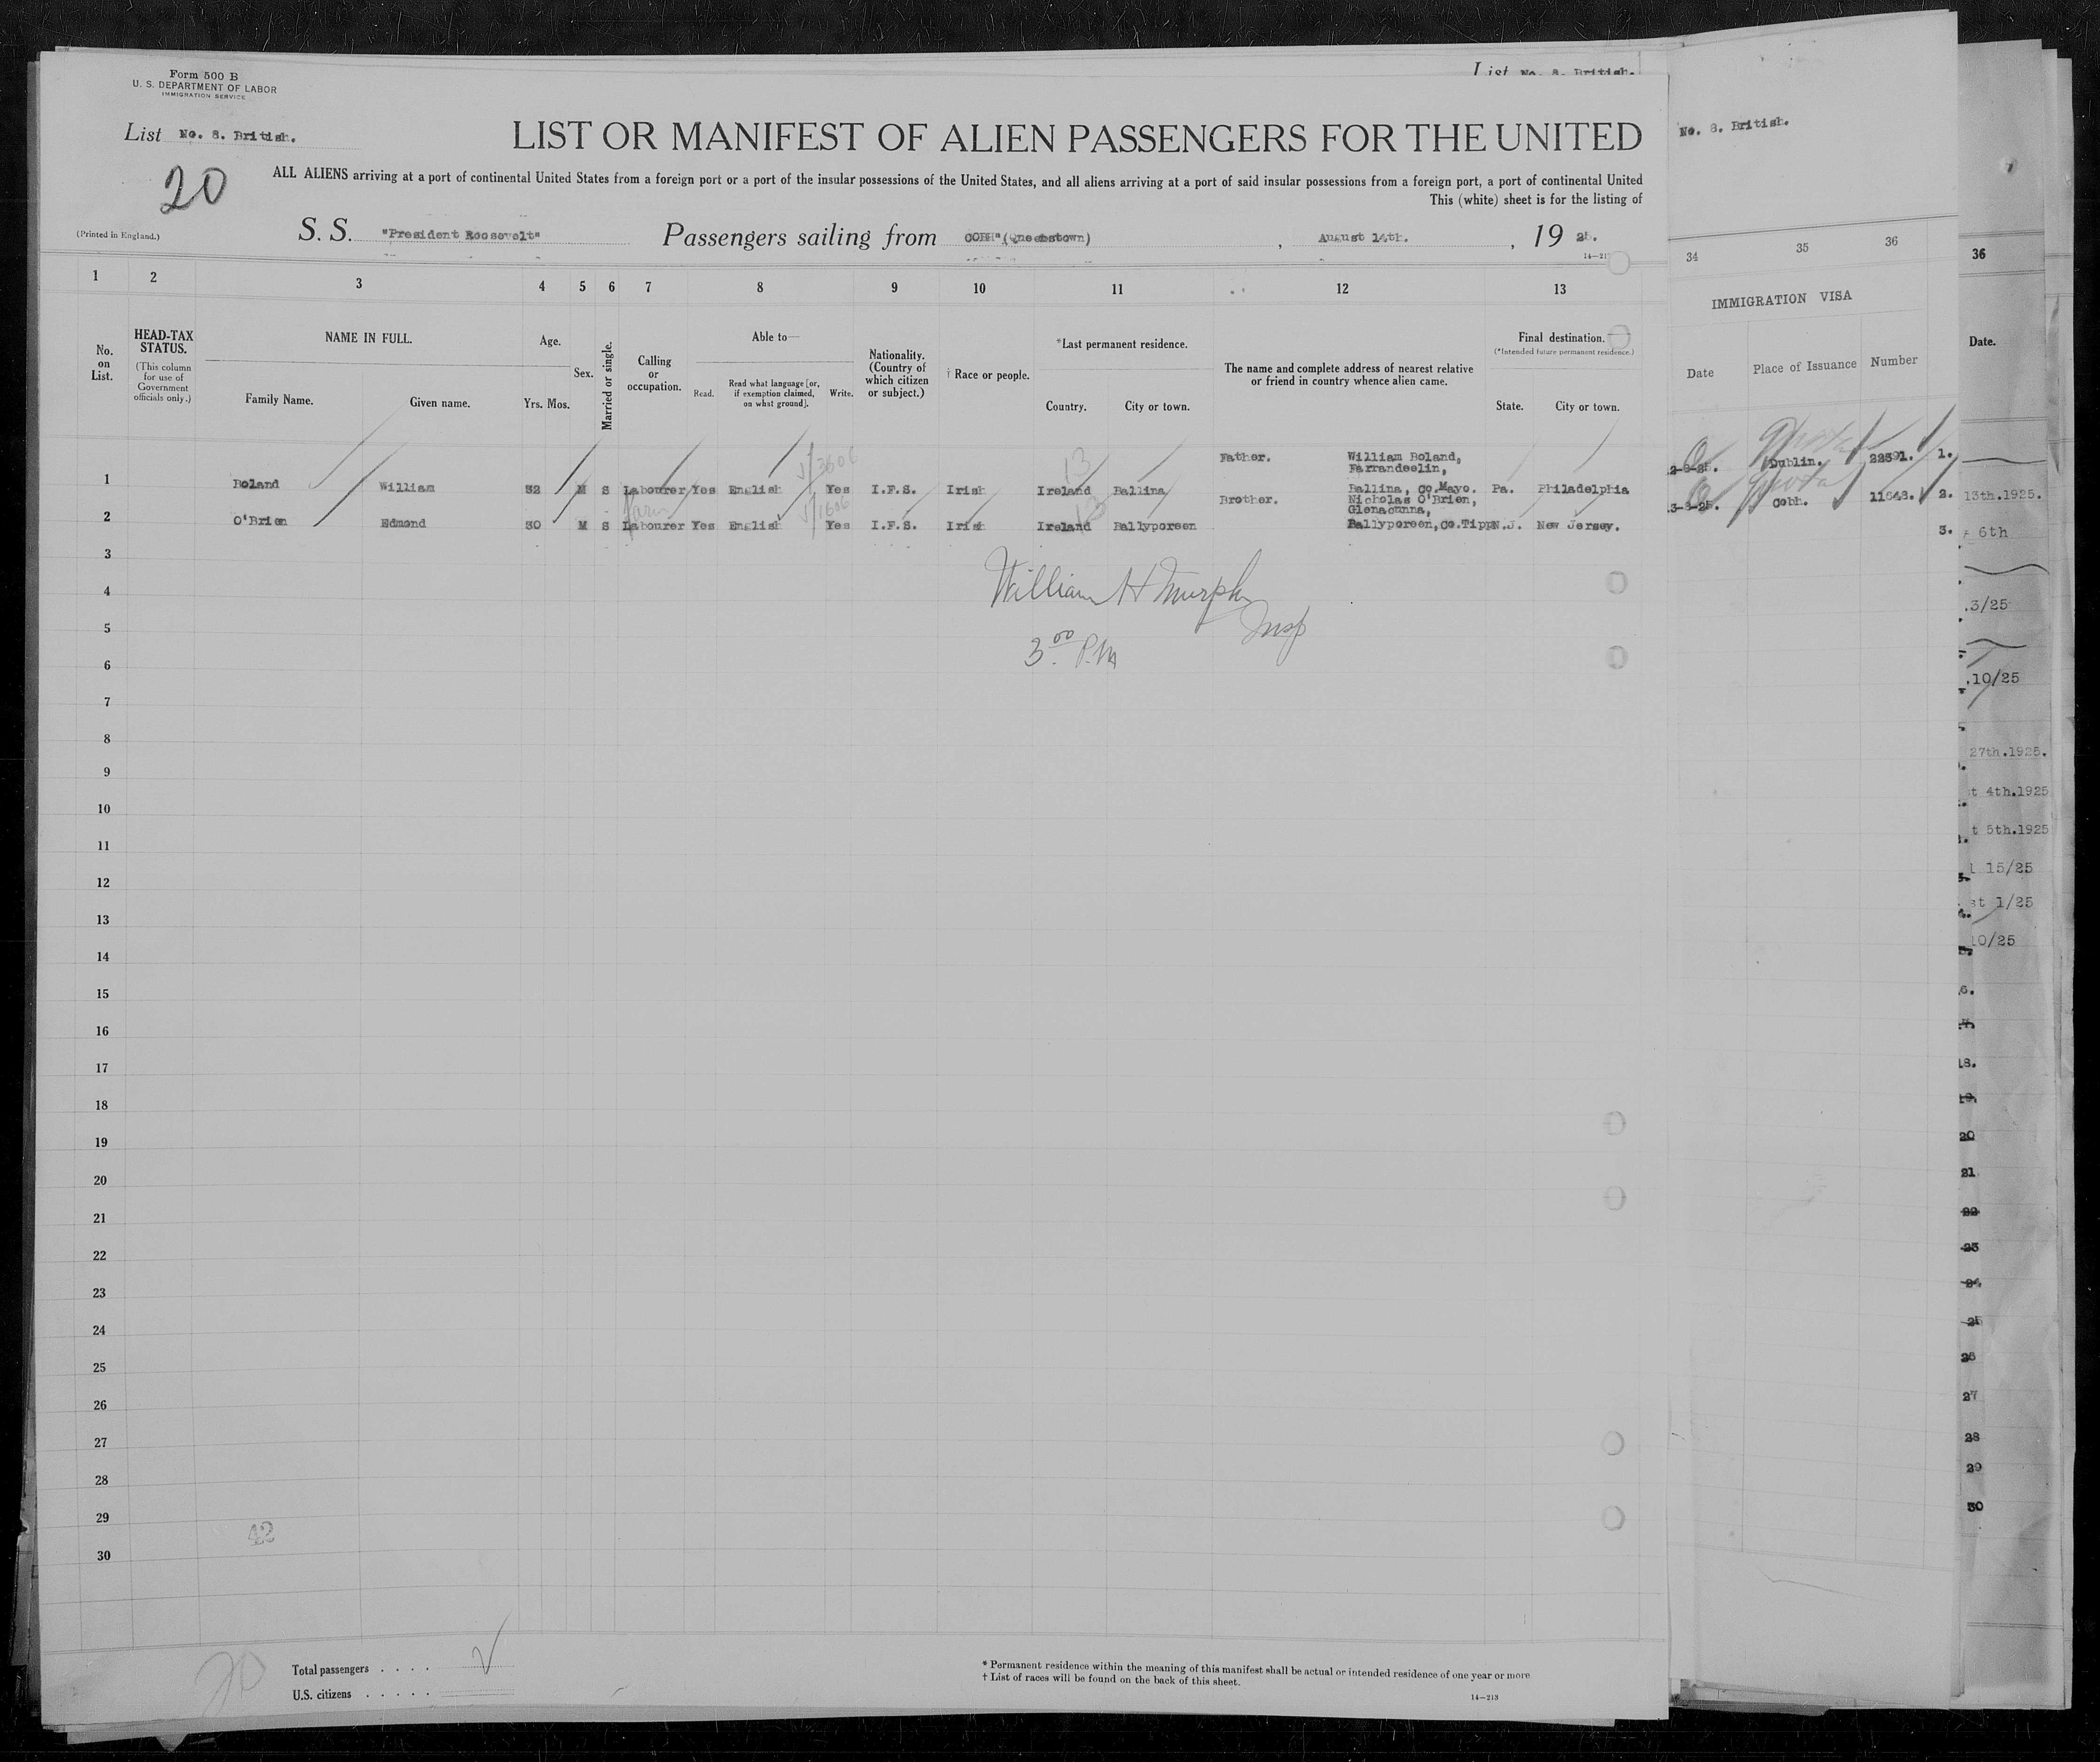 Form 500 B
U. S. DEPARTMENT OF LABOR
IMMIGRATION SERVICE
List No. 8. British.
List No. 8. British.
No. 8. British.
20
LIST OR MANIFEST OF ALIEN PASSENGERS FOR THE UNITED
ALL ALIENS arriving at a port of continental United States from a foreign port or a port of the insular possessions of the United States, and all aliens arriving at a port of said insular possessions from a foreign port, a port of continental United
This (white) sheet is for the listing of
(Printed in England.)
S. S. "President Roosevelt" Passengers sailing from COBH"(Queenstown) , August 14th. , 19 25.
14—21
1 2 3 4 5 6 7 8 9 10 11 12 13
34 35 36
36
No. on List.
HEAD-TAX STATUS.
(This column for use of Government officials only.)
NAME IN FULL.
Family Name. Given name.
Age.
Yrs. Mos.
Sex.
Married or single.
Calling or occupation.
Able to—
Read. Read what language [or, if exemption claimed, on what ground]. Write.
Nationality. (Country of which citizen or subject.)
† Race or people.
*Last permanent residence.
Country. City or town.
The name and complete address of nearest relative or friend in country whence alien came.
Final destination.
(*Intended future permanent residence.)
State. City or town.
IMMIGRATION VISA
Date Place of Issuance Number
Date.
13 3606
Father. William Boland,
Farrandeelin,
1 Boland William 32 M S Labourer Yes English Yes I.F.S. Irish Ireland Ballina Ballina, co.Mayo. Pa. Philadelphia
2-8-25. Dublin. 22391. 1.
farm 1606 13
Brother. Nicholas O'Brien,
Glenacunna,
2 O'Brien Edmond 30 M S Labourer Yes English Yes I.F.S. Irish Ireland Ballyporeen Ballyporeen,co.Tipp N.J. New Jersey.
3-8-25. Cobh. 11643. 2.
13th.1925.
3.
6th
3
4
5
6
7
8
9
10
11
12
13
14
15
16
17
18
19
20
21
22
23
24
25
26
27
28
29
30
William H Murphy
Insp
3.00 P.M
.3/25
.10/25
27th.1925.
t 4th.1925
t 5th.1925
15/25
st 1/25
10/25
6.
18.
19.
20
21
22
23
24
25
26
27
28
29
30
42
20
Total passengers . . . . 2
U.S. citizens . . . . .
* Permanent residence within the meaning of this manifest shall be actual or intended residence of one year or more
† List of races will be found on the back of this sheet.
14—213